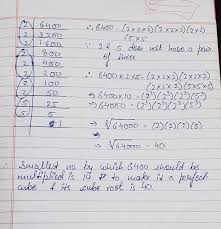 2 6400
2 3200
2 1600
2 800
2 400
2 200
2 100
2 50
5 25
5 5
1
∴ 6400 = (2×2×2)(2×2×2)(2×2)
(5×5
∵ 2 & 5 does not have a pair
of three
∴ 6400×2×5 = (2×2×2)(2×2×2)
(2×2×2)(5×5×5)
⇒ 6400×10 = (2³)(2³)(2³)(5³)
⇒ 64000 = (2³)(2³)(2³)(5³)
⇒ ∛64000 = (2)(2)(2)(5)
⇒ ∛64000 = 40
∴ Smallest no by which 6400 should be
multiplied is 10 to make it a perfect
cube & its cube root is 40